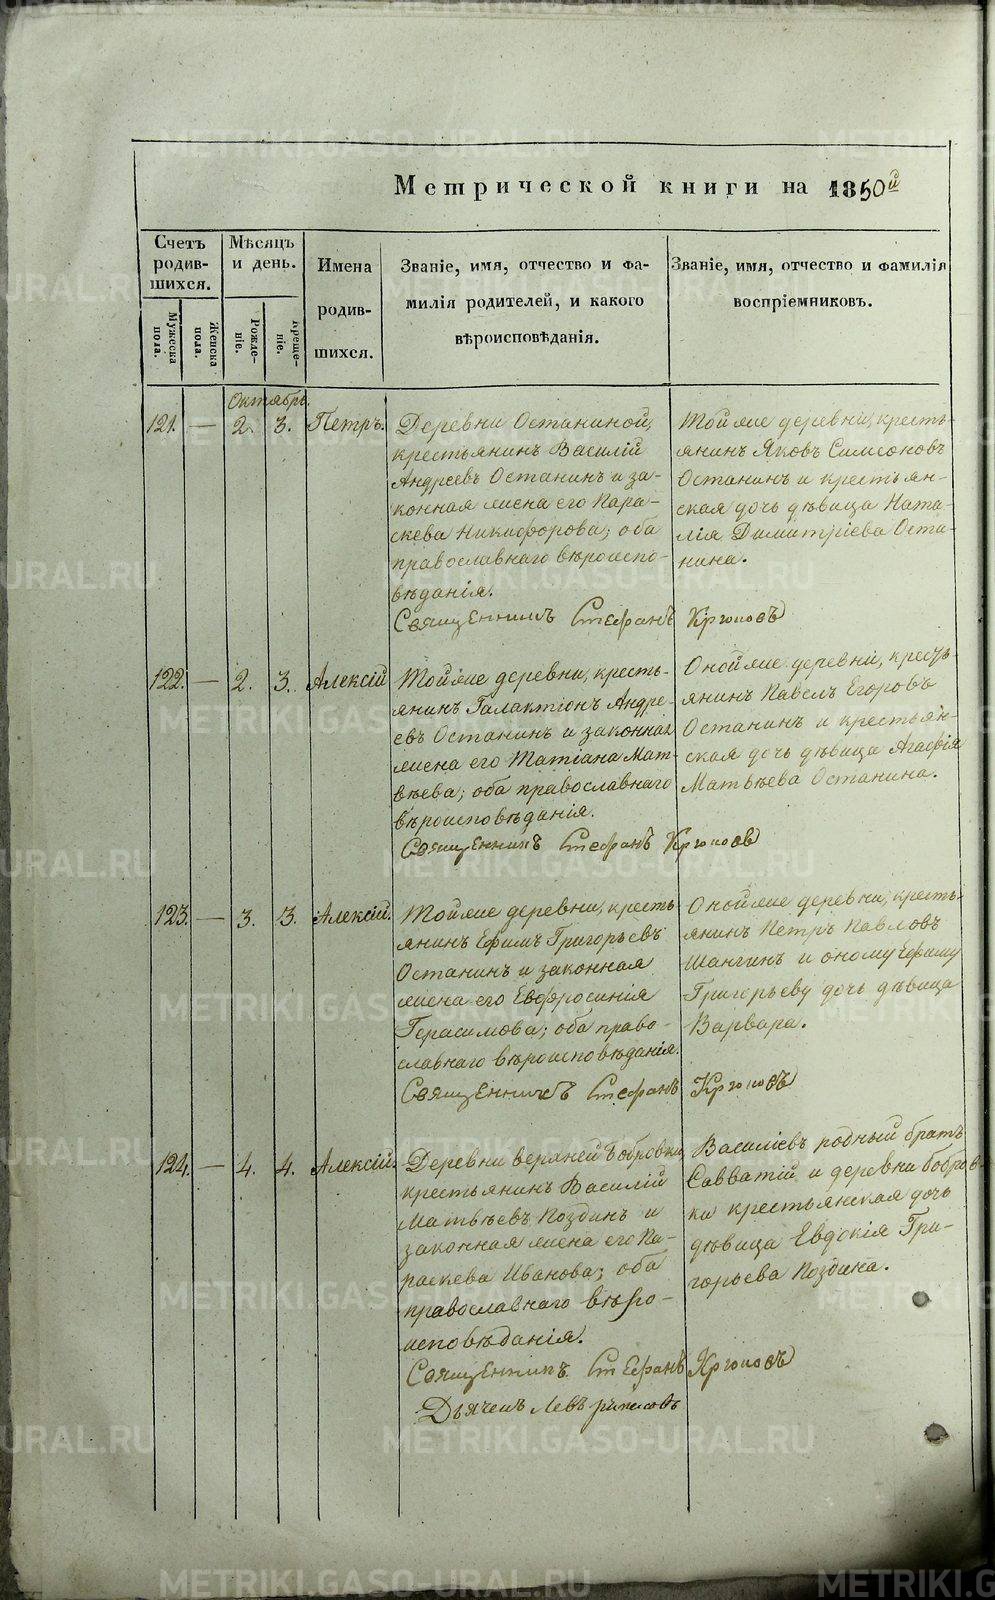 Метрической книги на 1850й
Счетъ родившихся.
Мужеска пола.
Женска пола.
Мѣсяцъ и день.
Рожденіе.
Крещеніе.
Имена родившихся.
Званіе, имя, отчество и фамилія родителей, и какого вѣроисповѣданія.
Званіе, имя, отчество и фамилія воспріемниковъ.
Октябрь.
121. — 2. 3. Петръ.
Деревни Останиной,
крестьянинъ Василій
Андреевъ Останинъ и за-
конная жена его Пара-
скева Никифорова; оба
православнаго вѣроиспо-
вѣданія.
Той же деревни, кресть-
янинъ Яковъ Симеоновъ
Останинъ и крестьян-
ская дочь дѣвица Ната-
лія Димитріева Оста-
нина.
Священникъ Стефанъ Крюковъ
122. — 2. 3. Алексій
Той же деревни, кресть-
янинъ Галактіонъ Андре-
евъ Останинъ и законная
жена его Татіана Мат-
вѣева; оба православнаго
вѣроисповѣданія.
Оной же деревни, кресть-
янинъ Павелъ Егоровъ
Останинъ и крестьян-
ская дочь дѣвица Агафія
Матвѣева Останина.
Священникъ Стефанъ Крюковъ
123. — 3. 3. Алексій.
Той же деревни, кресть-
янинъ Ефимъ Григорьевъ
Останинъ и законная
жена его Евфросинія
Герасимова; оба право-
славнаго вѣроисповѣданія.
Оной же деревни, кресть-
янинъ Петръ Павловъ
Шангинъ и оному Ефиму
Григорьеву дочь дѣвица
Варвара.
Священникъ Стефанъ Крюковъ
124. — 4. 4. Алексій.
Деревни верхней Бобровки,
крестьянинъ Василій
Матвѣевъ Поздинъ и
законная жена его Па-
раскева Иванова; оба
православнаго вѣро-
исповѣданія.
Василіевъ родный братъ
Савватій и деревни Бобров-
ки крестьянская дочь
дѣвица Евдокія Гри-
горьева Поздина.
Священникъ Стефанъ Крюковъ
Дьячекъ Левъ
METRIKI.GASO-URAL.RU